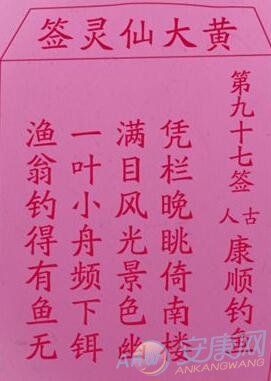 黄大仙灵签
第九十七签
古人 康顺钓鱼
凭栏晚眺倚南楼
满目风光景色幽
一叶小舟频下饵
渔翁钓得有鱼无
安康网
ANKANGWANG